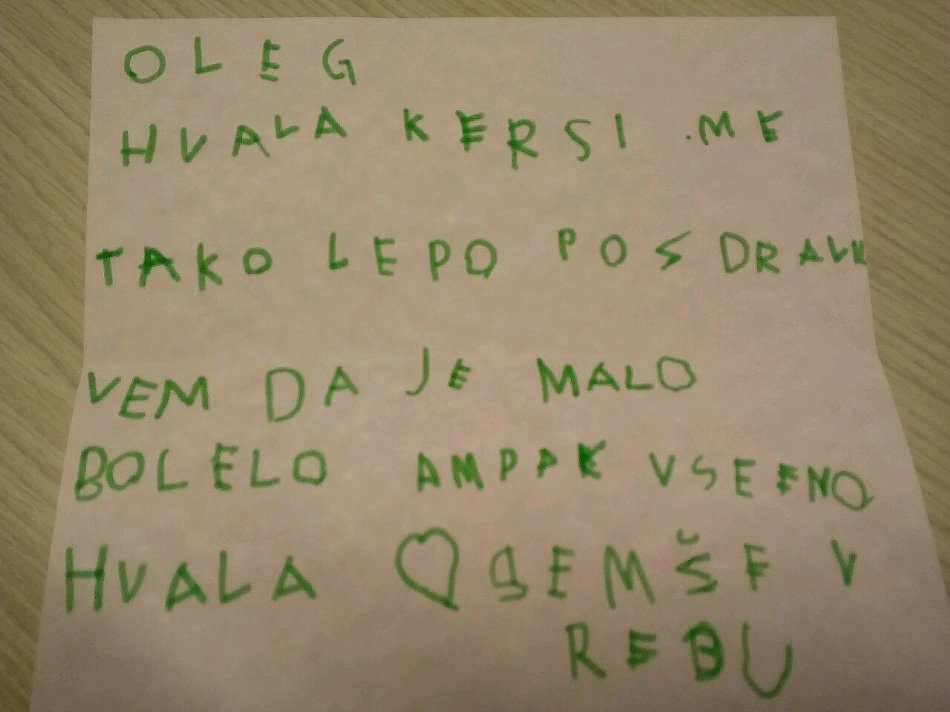 OLEG
HVALA KERSI ME
TAKO LEPO POSDRAVU
VEM DA JE MALO
BOLELO AMPAK VSEENO
HVALA ♡ SEM ŠE V
REBU